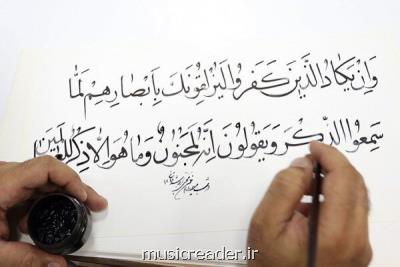 وَاِنْ يَكَادُ الَّذِينَ كَفَرُوا لَيُزْلِقُونَكَ بِاَبْصَارِهِمْ لَمَّا
سَمِعُوا الذِّكْرَ وَيَقُولُونَ اِنَّهُ لَمَجْنُونٌ وَمَا هُوَ اِلَّا ذِكْرٌ لِلْعَالَمِينَ
musicreader.ir